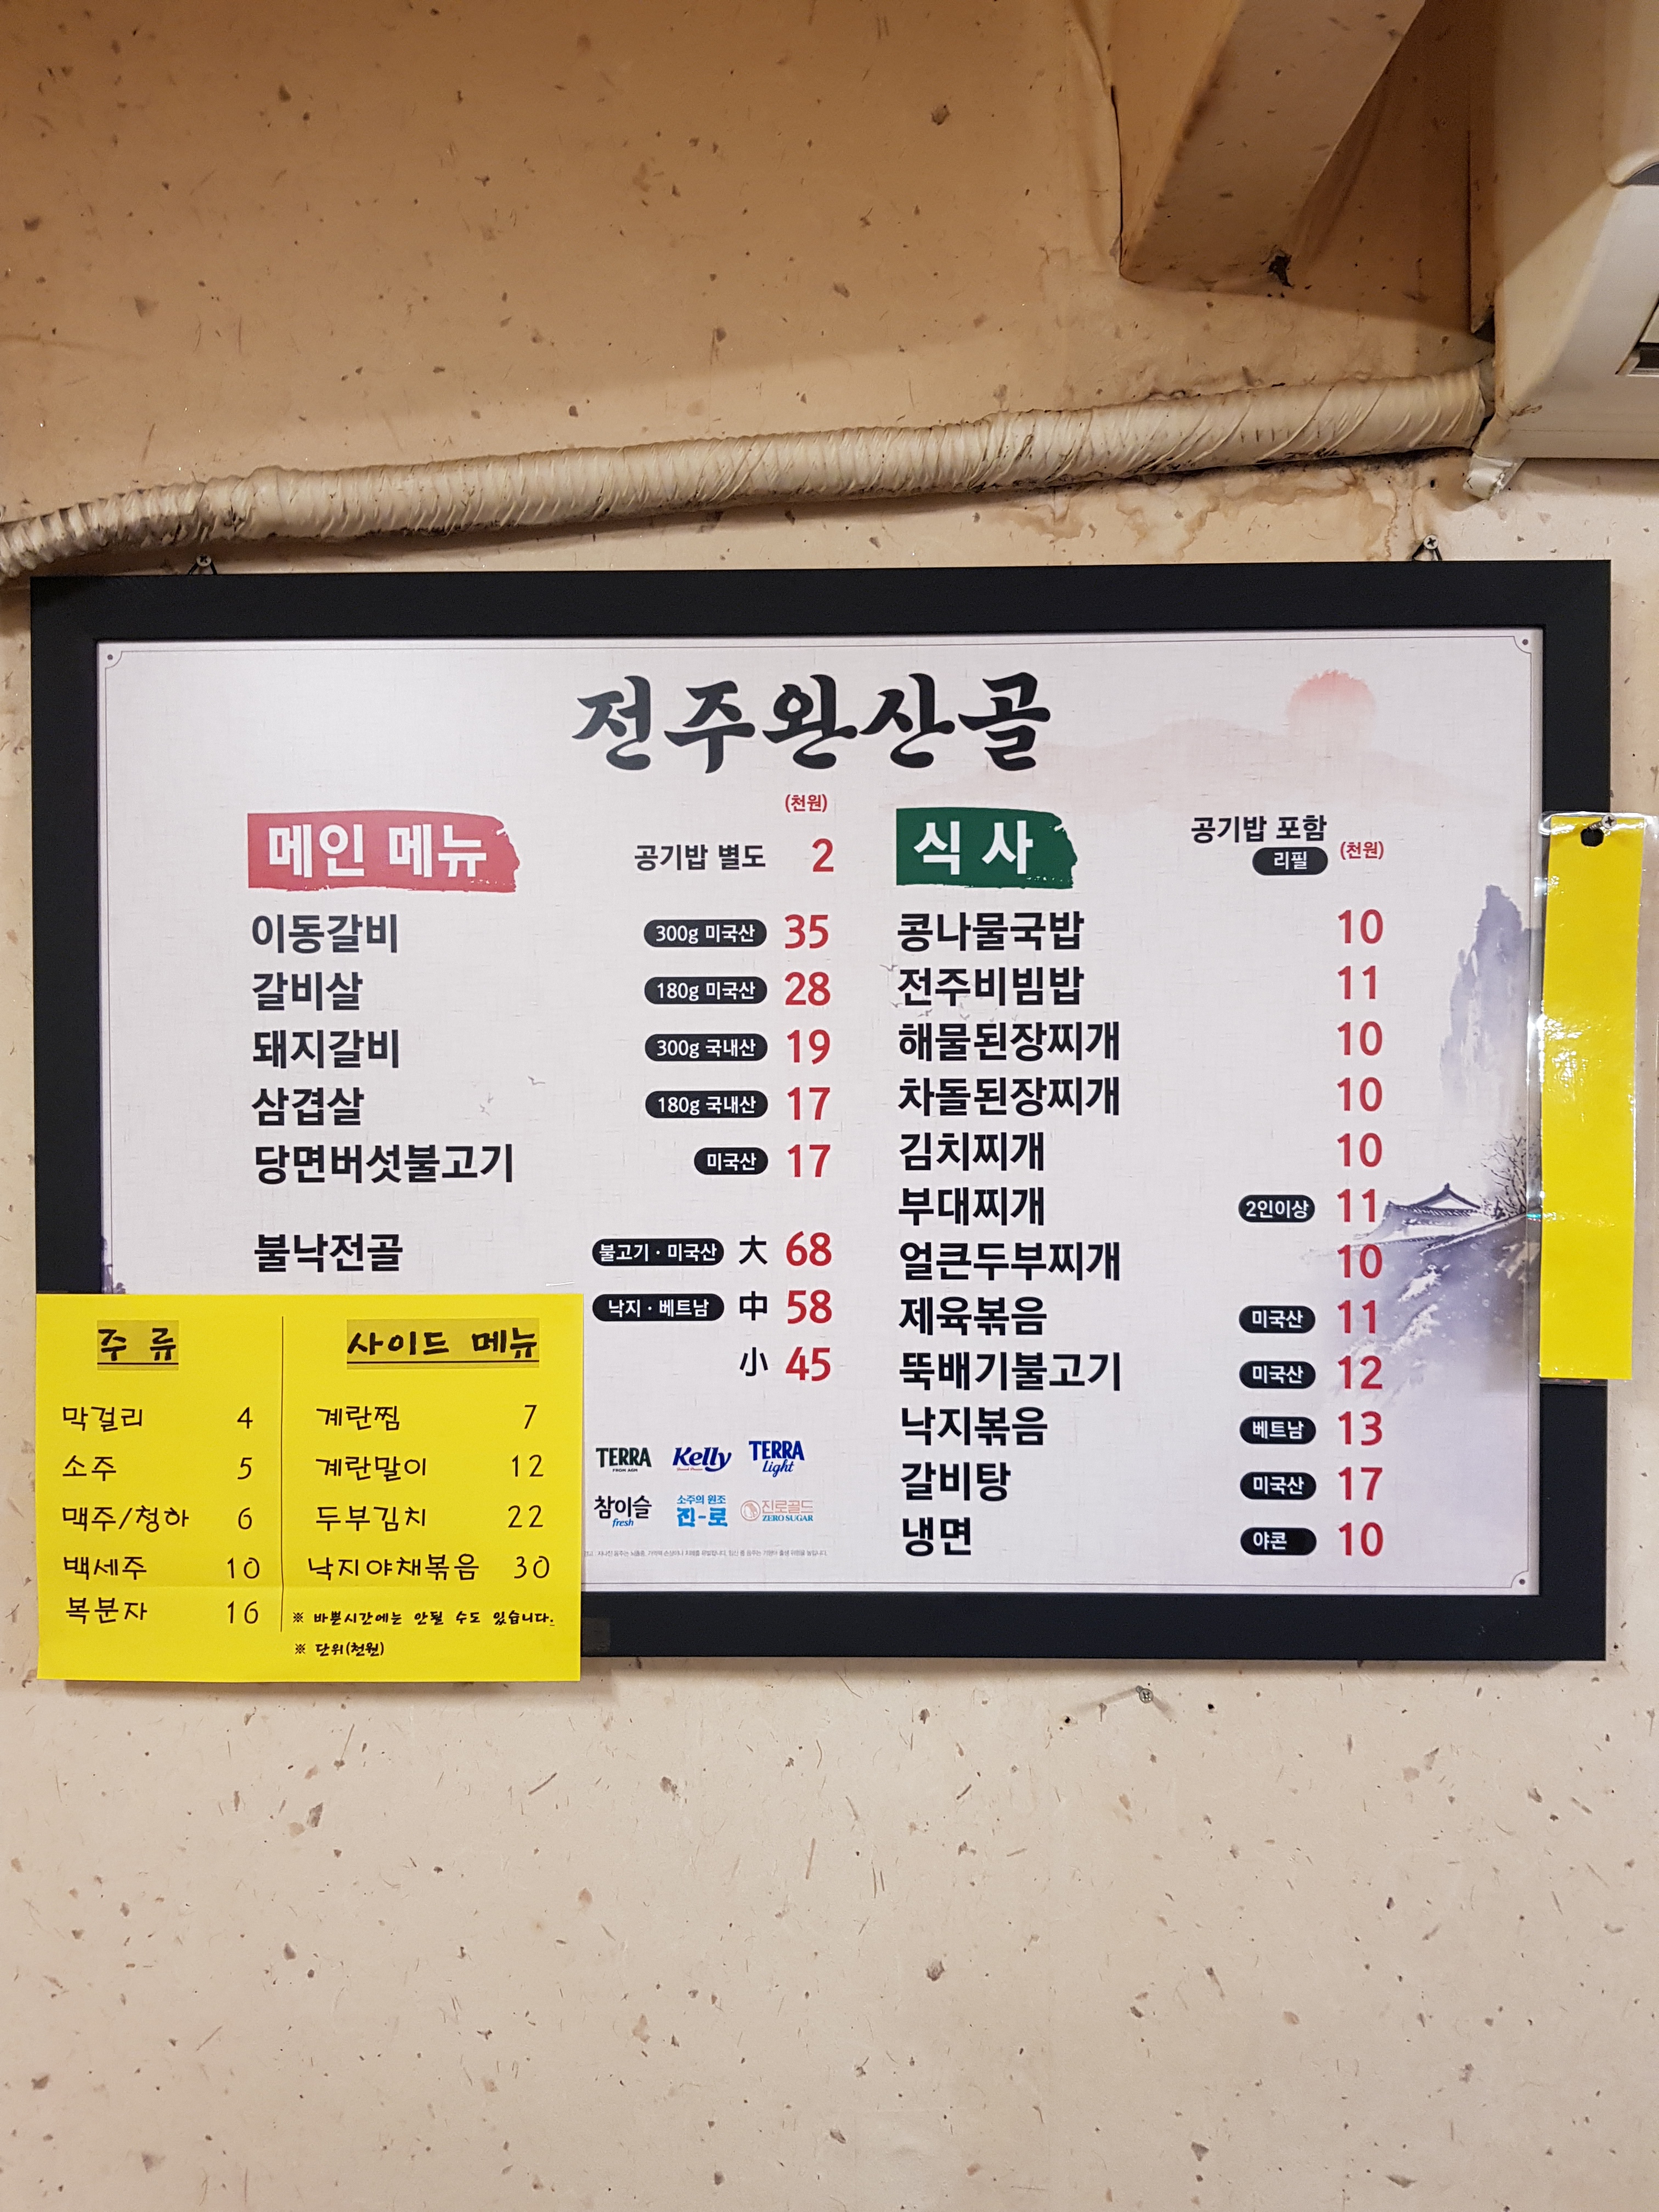 전주완산골
메인 메뉴
(천원)
공기밥 별도 2
이동갈비 300g 미국산 35
갈비살 180g 미국산 28
돼지갈비 300g 국내산 19
삼겹살 180g 국내산 17
당면버섯불고기 미국산 17
불낙전골 불고기·미국산 大 68
낙지·베트남 中 58
小 45
TERRA Kelly TERRA Light
참이슬 fresh 소주의 원조 진-로 진로골드 ZERO SUGAR
식사
공기밥 포함
리필 (천원)
콩나물국밥 10
전주비빔밥 11
해물된장찌개 10
차돌된장찌개 10
김치찌개 10
부대찌개 2인이상 11
얼큰두부찌개 10
제육볶음 미국산 11
뚝배기불고기 미국산 12
낙지볶음 베트남 13
갈비탕 미국산 17
냉면 야콘 10
주류
막걸리 4
소주 5
맥주/청하 6
백세주 10
복분자 16
사이드 메뉴
계란찜 7
계란말이 12
두부김치 22
낙지야채볶음 30
※ 바쁜시간에는 안될 수도 있습니다.
※ 단위(천원)